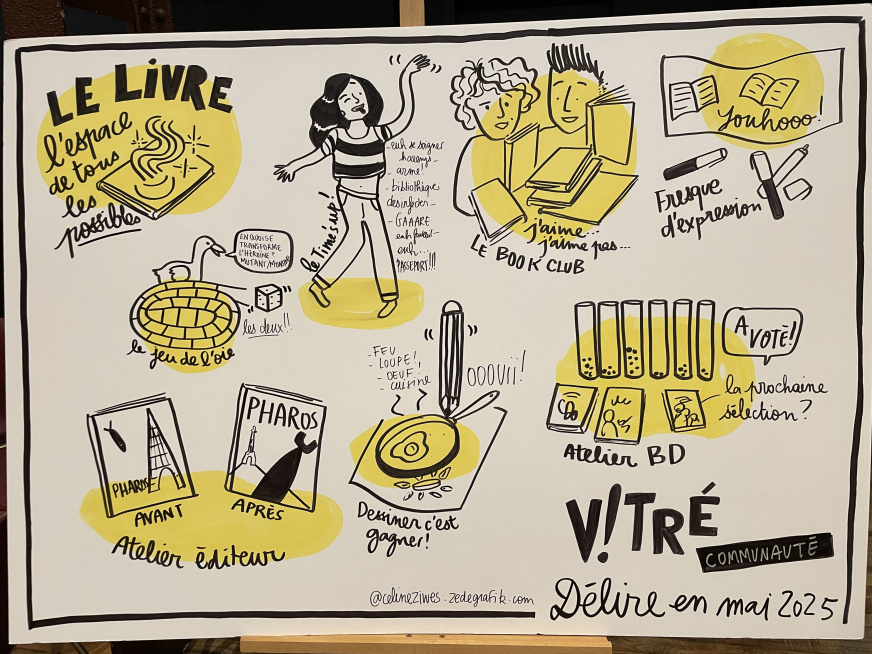 LE LIVRE
l'espace
de tous
les
possibles
- euh se soigner
- arme!
- bibliothèque
désinfecter -
- GAAARE
euh
PASSEPORT!!!
le Time's up!
j'aime...
j'aime pas...
LE BOOK CLUB
Youhooo!
Fresque
d'expression
EN QUOI SE
TRANSFORME
L'HÉROÏNE?
MUTANT/MONSTRE
les deux!!
le jeu de l'oie
- FEU
- LOUPE!
- OEUF
- cuisine
OOOUII!
Dessiner c'est
gagner!
A
VOTÉ!
la prochaine
sélection?
Atelier BD
PHAROS
AVANT
PHAROS
APRÈS
Atelier éditeur
V!TRÉ
COMMUNAUTÉ
@celineziwes - zedegrafik.com
Délire en mai 2025